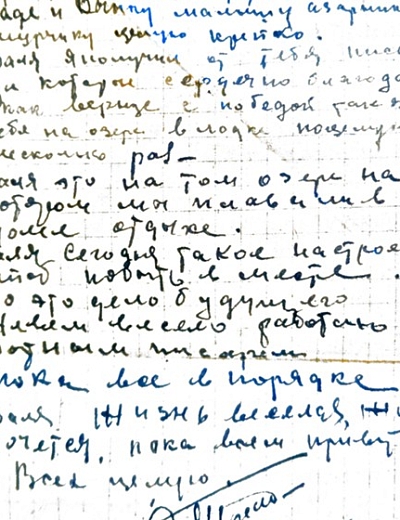 и Вашу мамашу
целую крепко.
аля я получил от тебя пись
и которой сердечно благода
как вернусь с победой так я
ебя на озере в лодке поцелую
несколько раз—
аля это на том озере на
отором мы плавали в
доме отдыхе.
аля сегодня такое настрое
побыть в месте.
о это дело будущего
Живем весело работаю
ротным писарем
пока все в порядке
аля жизнь веселая,
очется, пока всем привет
Всех целую.